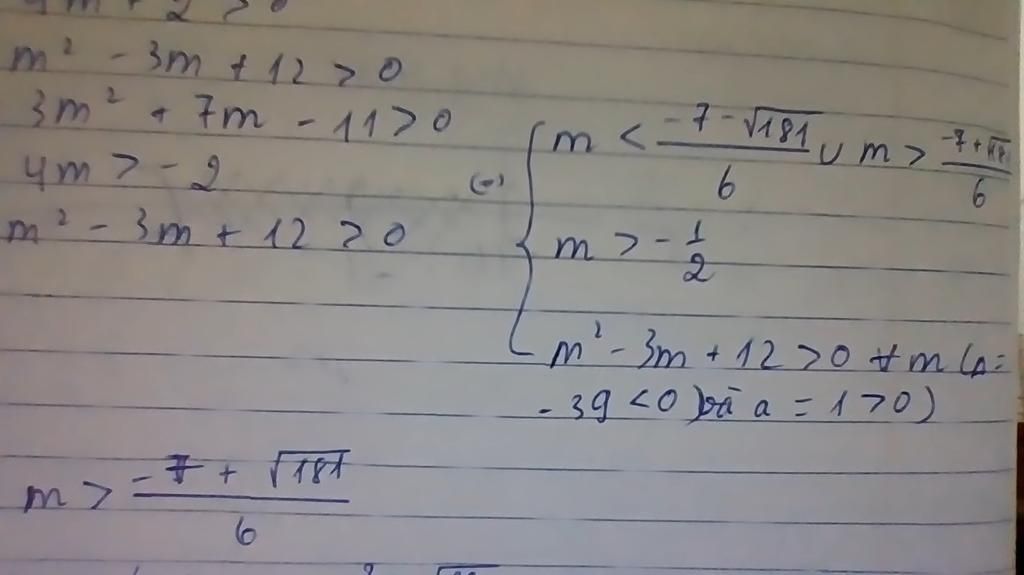 4m + 2 > 0
m² - 3m + 12 > 0
3m² + 7m - 11 > 0
4m > - 2
m² - 3m + 12 > 0
(=) { m < (-7 - √181)/6 ∪ m > (-7 + √181)/6
m > - 1/2
m² - 3m + 12 > 0 ∀ m (Δ =
- 39 < 0 ) và a = 1 > 0)
m > (-7 + √181)/6